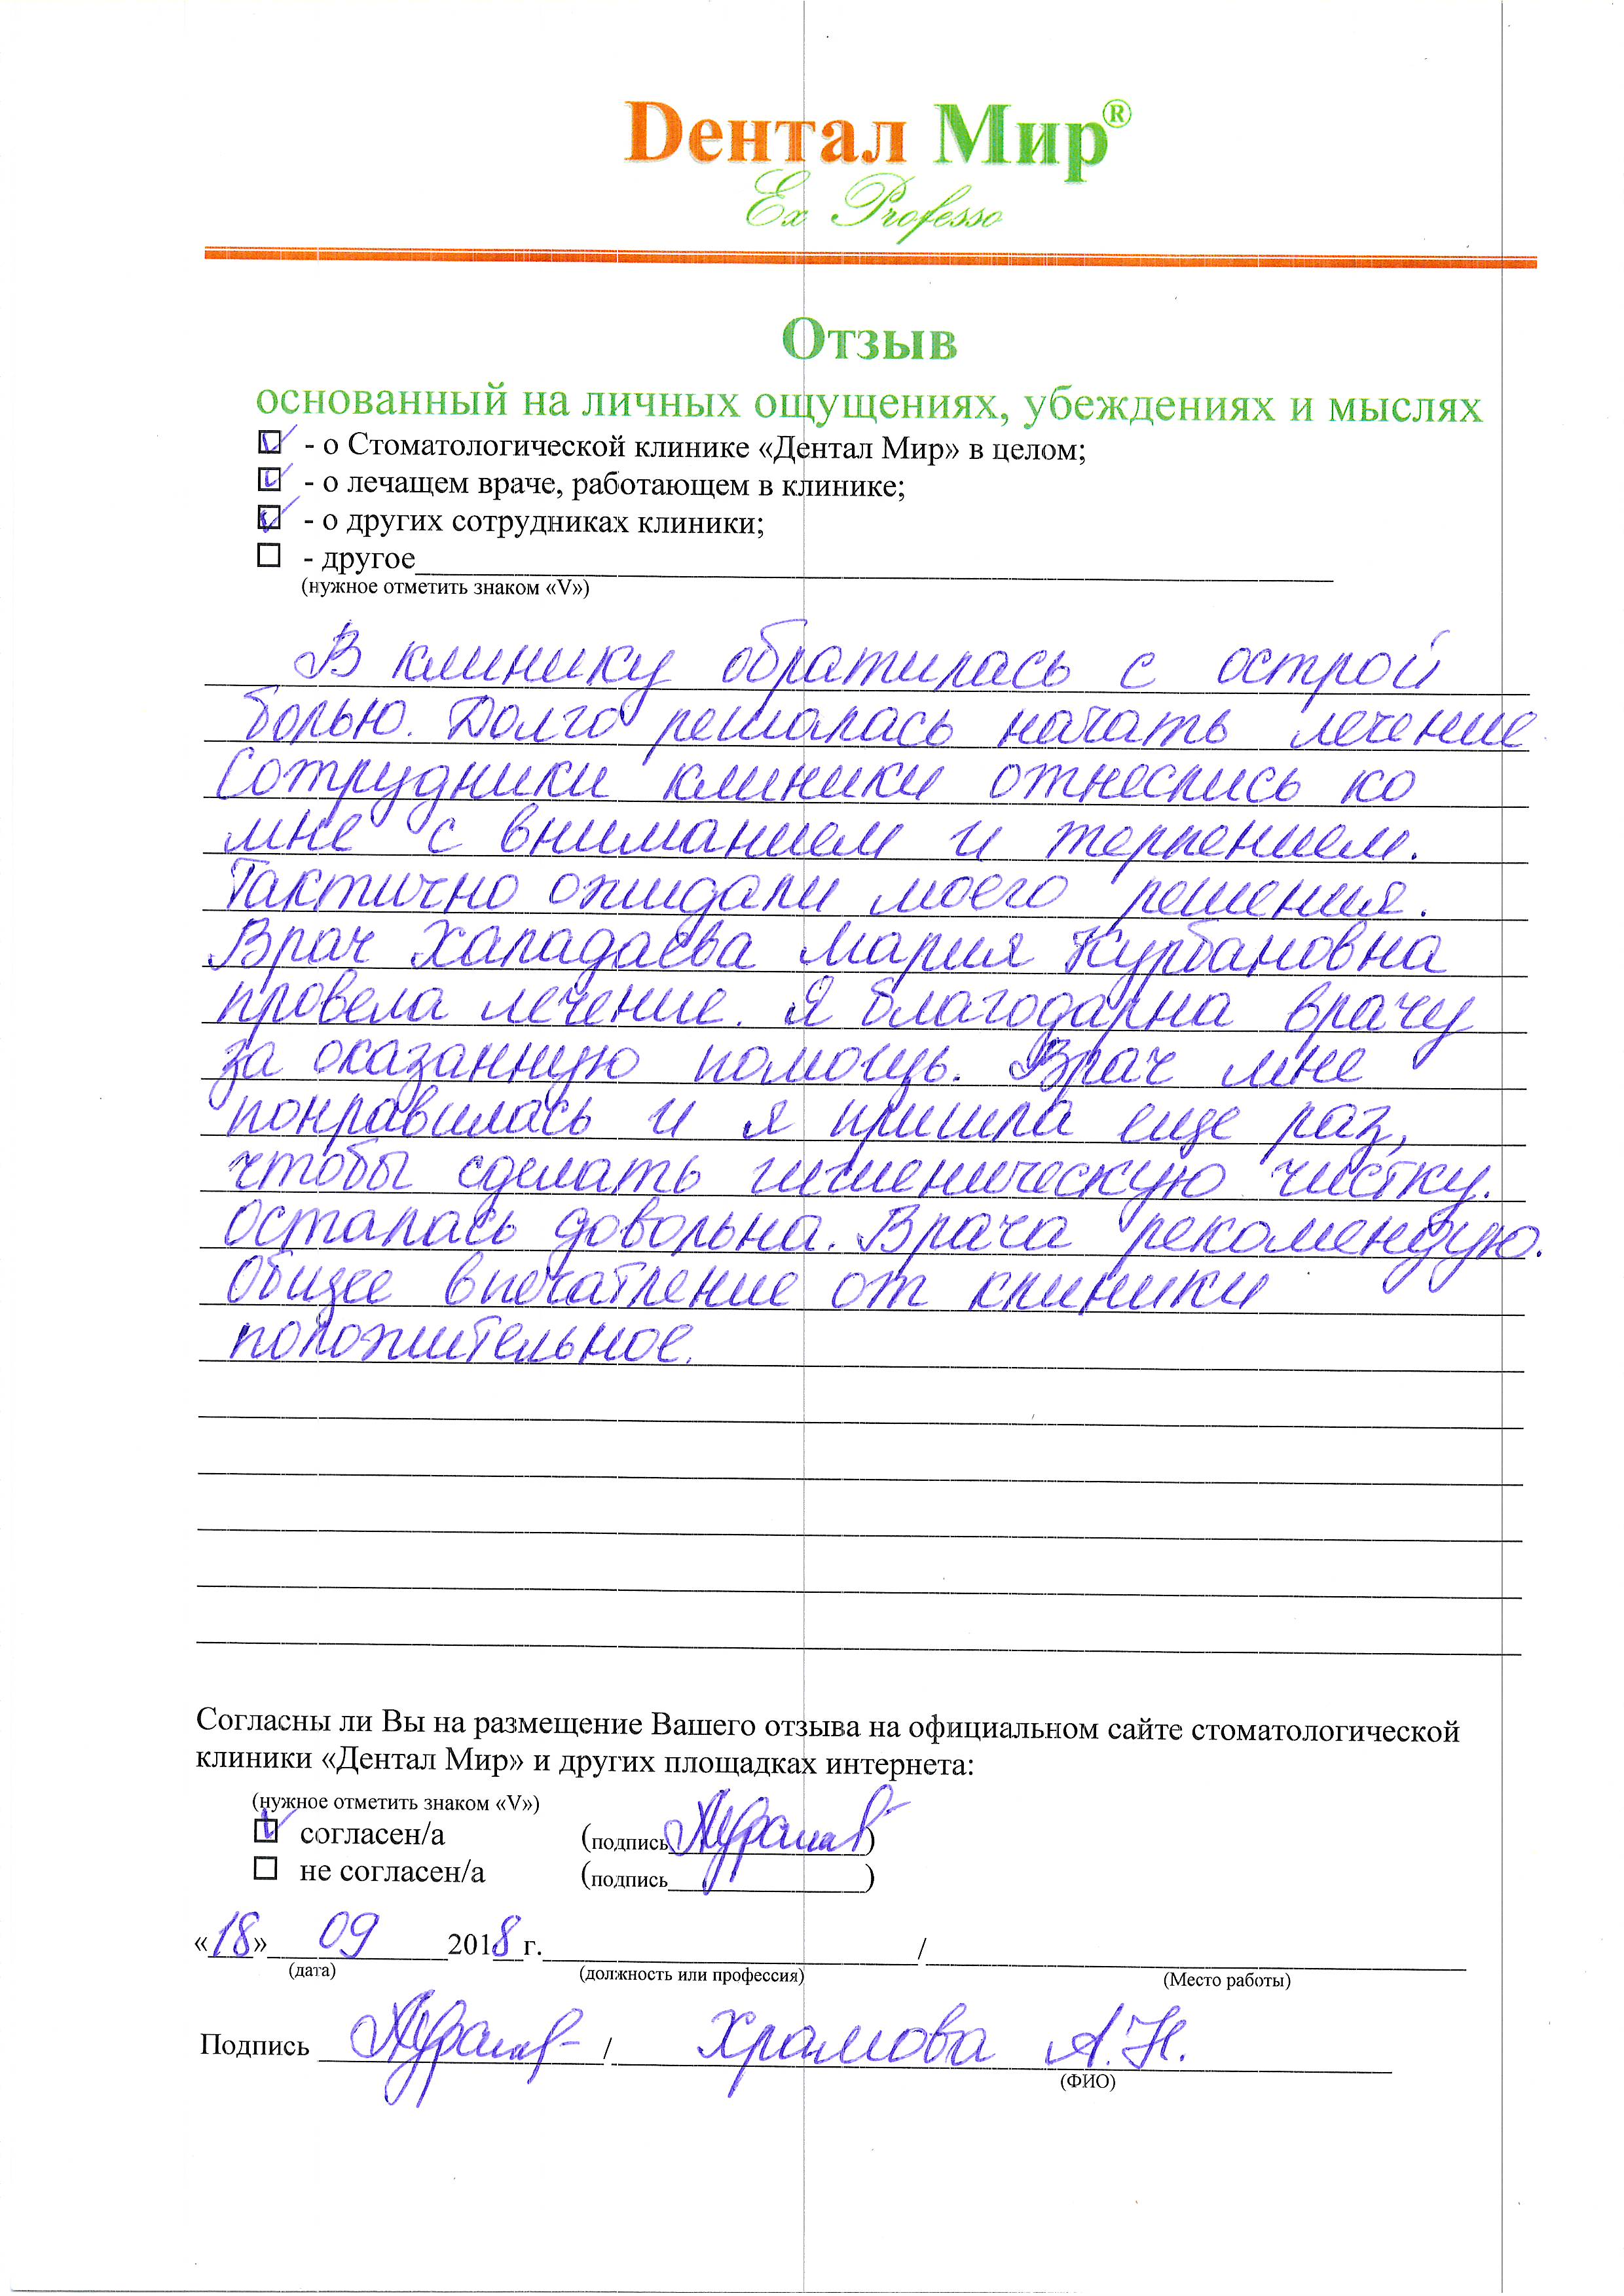 Dентал Мир®
Ex Professo
Отзыв
основанный на личных ощущениях, убеждениях и мыслях
- о Стоматологической клинике «Дентал Мир» в целом;
- о лечащем враче, работающем в клинике;
- о других сотрудниках клиники;
- другое
(нужное отметить знаком «V»)
В клинику обратилась с острой
болью. Долго решалась начать лечение
Сотрудники клиники отнеслись ко
мне с вниманием и терпением.
Тактично ожидали моего решения.
Врач Халадаева Мария Курбановна
провела лечение. Я благодарна врачу
за оказанную помощь. Врач мне
понравилась и я пришла еще раз,
чтобы сделать гигиеническую чистку.
Осталась довольна. Врача рекомендую.
Общее впечатление от клиники
положительное.
Согласны ли Вы на размещение Вашего отзыва на официальном сайте стоматологической
клиники «Дентал Мир» и других площадках интернета:
(нужное отметить знаком «V»)
согласен/а (подпись )
не согласен/а (подпись )
«18» 09 2018 г. /
(дата) (должность или профессия) (Место работы)
Подпись / Храмова А.Н.
(ФИО)